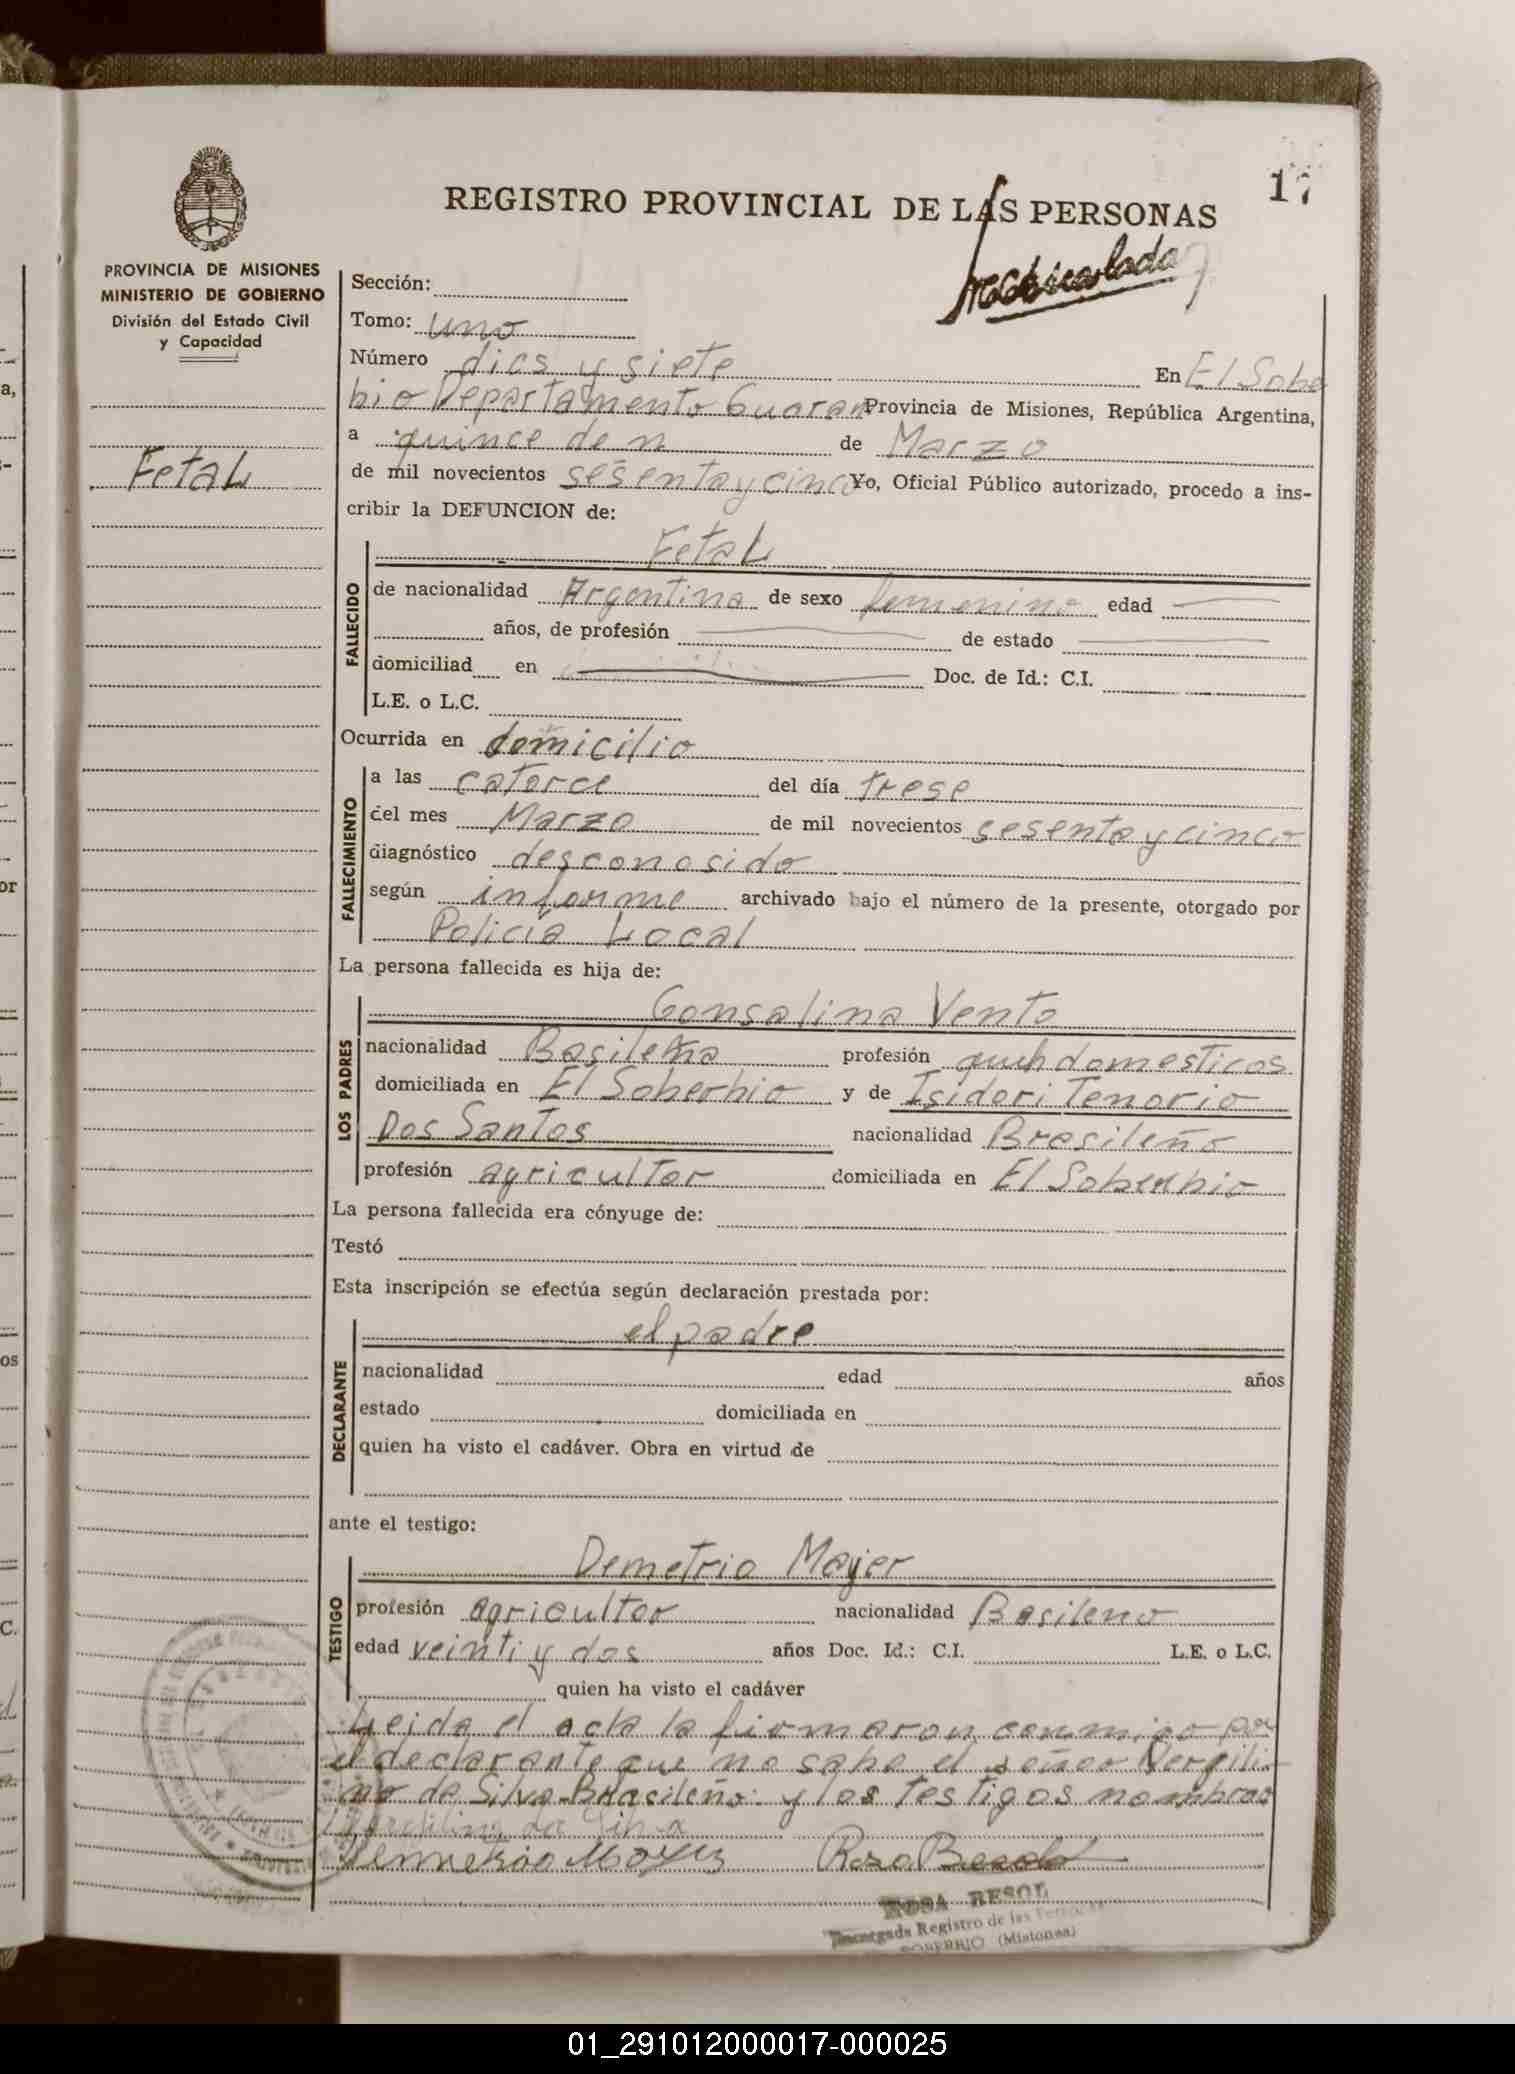 17
REGISTRO PROVINCIAL DE LAS PERSONAS
PROVINCIA DE MISIONES
MINISTERIO DE GOBIERNO
División del Estado Civil
y Capacidad
FetaL
Sección:
Tomo: uno
Número dies y siete En El Sober
bio Departamento Guaran Provincia de Misiones, República Argentina,
a quince de de Marzo
de mil novecientos sesenta y cinco Yo, Oficial Público autorizado, procedo a ins-
cribir la DEFUNCION de:
FetaL
FALLECIDO
de nacionalidad Argentina de sexo femenino edad
años, de profesión de estado
domiciliad en Doc. de Id.: C.I.
L.E. o L.C.
Ocurrida en domicilio
FALLECIMIENTO
a las catorce del día trese
del mes Marzo de mil novecientos sesenta y cinco
diagnóstico desconosido
según informe archivado bajo el número de la presente, otorgado por
Policia Local
La persona fallecida es hija de:
LOS PADRES
Gonsalina Vento
nacionalidad Basileña profesión domesticos
domiciliada en El Soberbio y de Isidori Tenorio
Dos Santos nacionalidad Brasileño
profesión agricultor domiciliada en El Soberbio
La persona fallecida era cónyuge de:
Testó
Esta inscripción se efectúa según declaración prestada por:
DECLARANTE
el padre
nacionalidad edad años
estado domiciliada en
quien ha visto el cadáver. Obra en virtud de
ante el testigo:
TESTIGO
Demetrio Mayer
profesión agricultor nacionalidad Basileno
edad veinti y dos años Doc. Id.: C.I. L.E. o L.C.
quien ha visto el cadáver
Leida el acta la firmaron conmigo por
el declarante que no sabe el señor Vergili
no de Silva Brasileño y los testigos nombrao
ROSA BESOL
Encargada Registro de las Personas
SOBERBIO (Misiones)
01_291012000017-000025